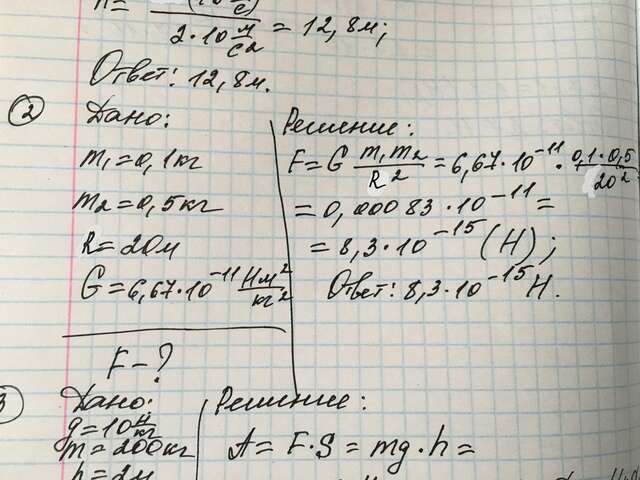 2·10 м/с2 = 12,8м;
Ответ: 12,8м.
②
Дано:
m₁=0,1кг
m₂=0,5кг
R=20м
G=6,67·10⁻¹¹ Нм²/кг²
F-?
Решение:
F=G m₁m₂/R² =6,67·10⁻¹¹· 0,1·0,5/20²
=0,00083·10⁻¹¹=
=8,3·10⁻¹⁵(Н);
Ответ:8,3·10⁻¹⁵Н.
3
Дано:
g=10 Н/кг
m=200кг
h=2м
Решение:
A=F·S=mg·h=